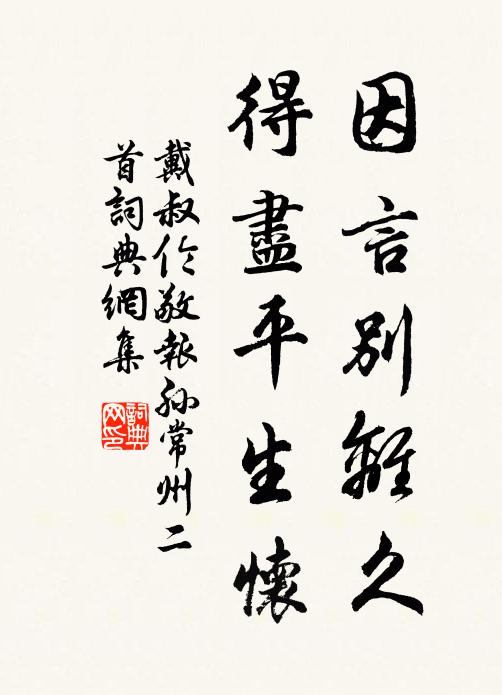 因言別離久
得盡平生懷
戴叔伦敬報孫常州二
首詞典網集
詞典
网印